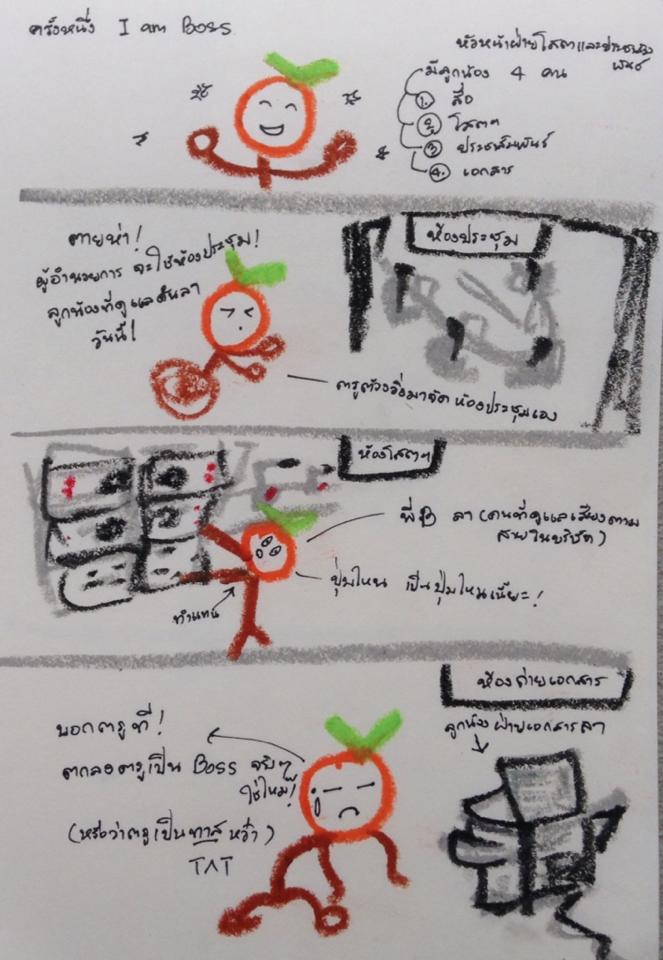 ครั้งหนึ่ง I am Boss
หัวหน้าฝ่ายโสตฯและประชาสัม
พันธ์
มีลูกน้อง 4 คน
1. สื่อ
2. โสตฯ
3. ประชาสัมพันธ์
4. เอกสาร
ตายห่า!
ผู้อำนวยการ จะใช้ห้องประชุม!
ลูกน้องที่ดูแลดันลา
วันนี้!
ห้องประชุม
ตรูต้องวิ่งมาจัดห้องประชุมเอง
ห้องโสตฯ
พี่B ลา (คนที่ดูแลเสียงตาม
สายในบริษัท)
ปุ่มไหน เป็นปุ่มไหนเนี้ยะ!
ทำแทน
ห้องถ่ายเอกสาร
ลูกน้องฝ่ายเอกสารลา
บอกตรูที!
ตกลงตรูเป็น Boss จริงๆ
ใช่ไหม!
(หรือว่าตรูเป็นทาสหว่า)
TAT